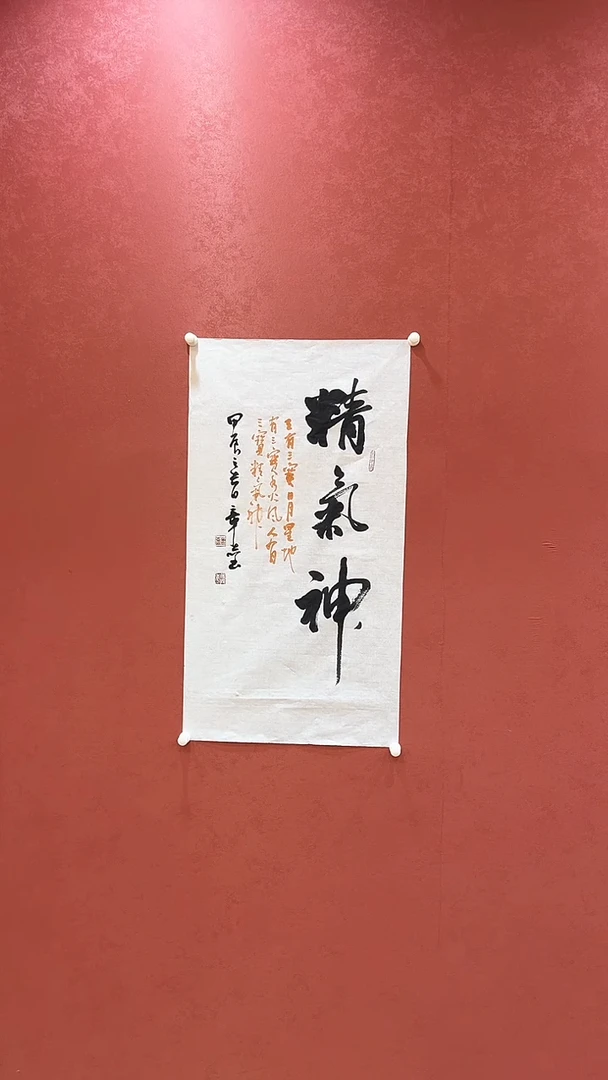 精氣神
天有三寶日月星地
有三寶水火風人有
三寶精氣神
甲辰之春日章